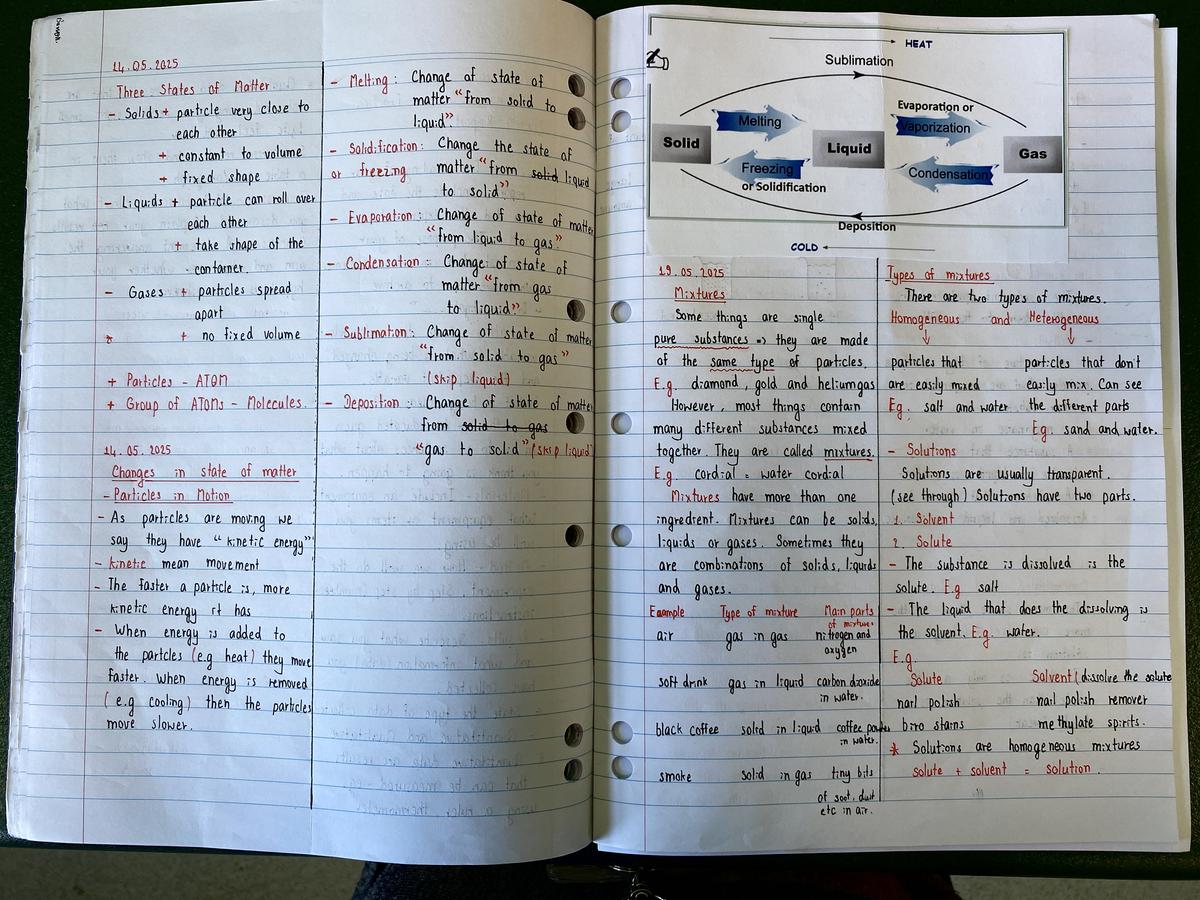 14.05.2025
Three States of Matter
- Solids + particle very close to
each other
+ constant to volume
+ fixed shape
- Liquids + particle can roll over
each other
+ take shape of the
container.
- Gases + particles spread
apart
+ no fixed volume
+ Particles - ATOM
+ Group of ATOMs - Molecules.
14.05.2025
Changes in state of matter
- Particles in Motion
- As particles are moving we
say they have "kinetic energy"
- kinetic mean movement
- The faster a particle is, more
kinetic energy it has
- When energy is added to
the particles (e.g heat) they move
faster. When energy is removed
(e.g cooling) then the particles
move slower.
- Melting: Change of state of
matter "from solid to
liquid".
- Solidification: Change the state of
or freezing matter "from solid liquid
to solid"
- Evaporation: Change of state of matter
"from liquid to gas"
- Condensation: Change of state of
matter "from gas
to liquid"
- Sublimation: Change of state of matter
"from solid to gas"
(skip liquid)
- Deposition: Change of state of matter
from solid to gas
"gas to solid" (skip liquid)
HEAT
Sublimation
Evaporation or
Melting Vaporization
Solid Liquid Gas
Freezing Condensation
or Solidification
Deposition
COLD
19.05.2025
Mixtures
Some things are single
pure substances => they are made
of the same type of particles.
E.g. diamond, gold and helium gas
However, most things contain
many different substances mixed
together. They are called mixtures.
E.g. cordial = water cordial
Mixtures have more than one
ingredient. Mixtures can be solids,
liquids or gases. Sometimes they
are combinations of solids, liquids
and gases.
Example Type of mixture Main parts
of mixture.
air gas in gas nitrogen and
oxygen
soft drink gas in liquid carbon dioxide
in water.
black coffee solid in liquid coffee powder
in water.
smoke solid in gas tiny bits
of soot, dust
etc in air.
Types of mixtures
There are two types of mixtures.
Homogeneous and Heterogeneous
particles that particles that don't
are easily mixed easily mix. Can see
Eg. salt and water the different parts
Eg. sand and water.
- Solutions
Solutions are usually transparent.
(see through) Solutions have two parts.
1. Solvent
2. Solute
- The substance is dissolved is the
solute. E.g salt
- The liquid that does the dissolving is
the solvent. E.g. water.
E.g
Solute Solvent (dissolve the solute
nail polish nail polish remover
biro stains methylate spirits.
* Solutions are homogeneous mixtures
solute + solvent = solution.